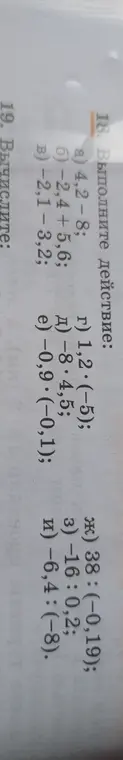 18. Выполните действие:
а) 4,2 – 8; г) 1,2 · (–5); ж) 38 : (–0,19);
б) –2,4 + 5,6; д) –8 · 4,5; з) –16 : 0,2;
в) –2,1 – 3,2; е) –0,9 · (–0,1); и) –6,4 : (–8).
19. Вычислите: